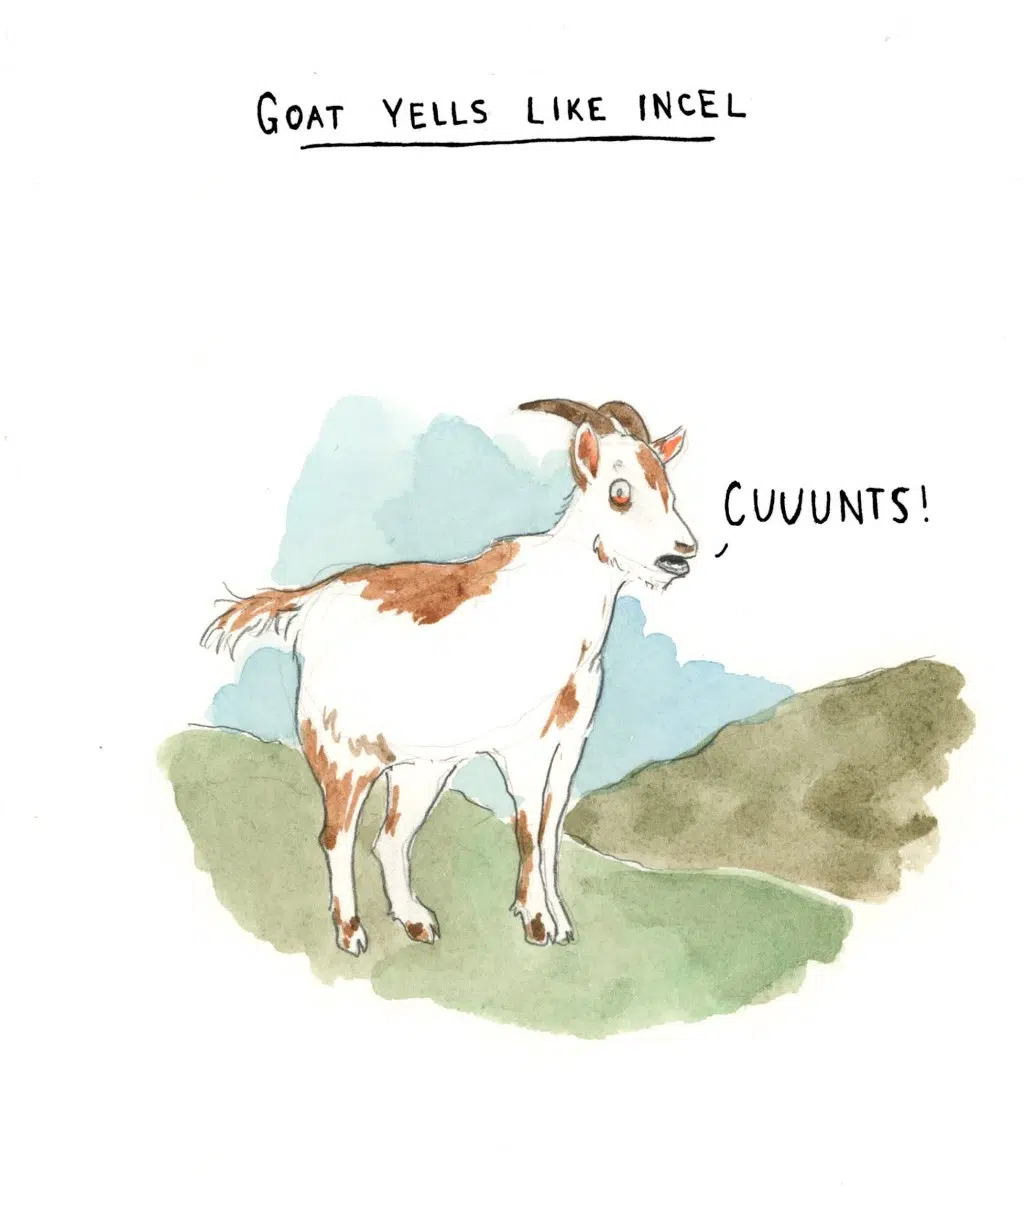 GOAT YELLS LIKE INCEL
CUUUNTS!